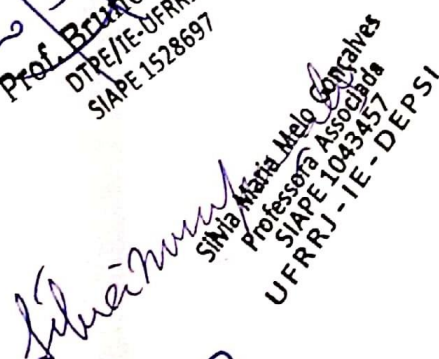 Prof. Bruno
DTPE/IE-UFRR
SIAPE 1528697
Silvia Maria Melo Gonçalves
Professora Associada
SIAPE 1043457
UFRRJ - IE - DEPSI